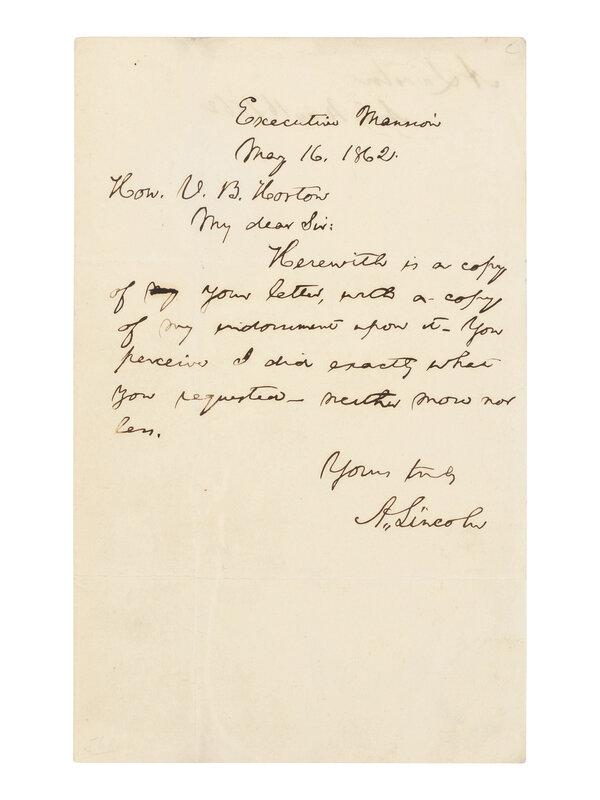 Executive Mansion
May 16. 1862.
Hon. V. B. Horton
My dear Sir:
Herewith is a copy
of my your letter, with a copy
of my indorsement upon it— You
perceive I did exactly what
you requested— neither more nor
less.
Yours truly
A. Lincoln